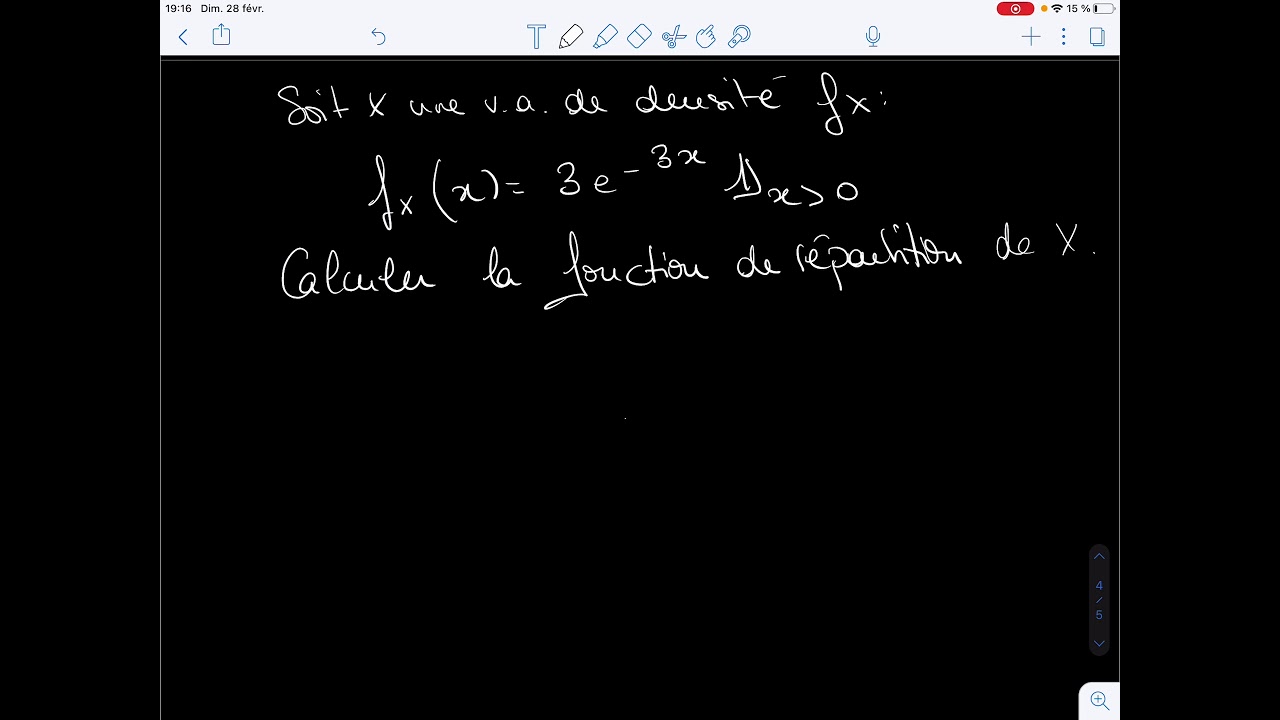 19:16 Dim. 28 févr. 15 %
Soit X une v.a. de densité fₓ:
fₓ(x) = 3e^{-3x} 𝟙_{x>0}
Calculer la fonction de répartition de X.
4
/
5